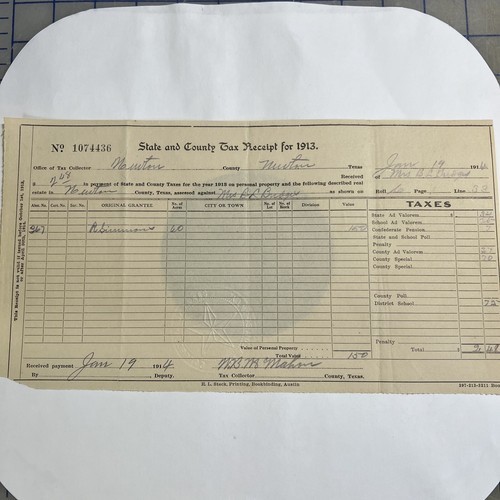 Nº 1074436 State and County Tax Receipt for 1913.
Office of Tax Collector Newton County Newton Texas Jan 19 1914
Received
$ 2.48 in payment of State and County Taxes for the year 1913 on personal property and the following described real
estate in Newton County, Texas, assessed against Mrs as shown on Roll Page Line
Abst. No. Cert. No. Sur. No. ORIGINAL GRANTEE No. of Acres CITY OR TOWN No. of Lot No. of Block Division Value TAXES
367 R Simmons 60 150
State Ad Valorem $
School Ad Valorem
Confederate Pension
State and School Poll
Penalty
County Ad Valorem
County Special
County Special
County Poll
District School 75
Penalty
Value of Personal Property
Total $ 2.48
Total Value 150
Received payment Jan 19 1914. McMahon
By , Deputy. Tax Collector County, Texas.
H. L. Stack, Printing, Bookbinding, Austin
This Receipt is not valid if issued before October 1st, 1913,
or after April 30th, 1914.